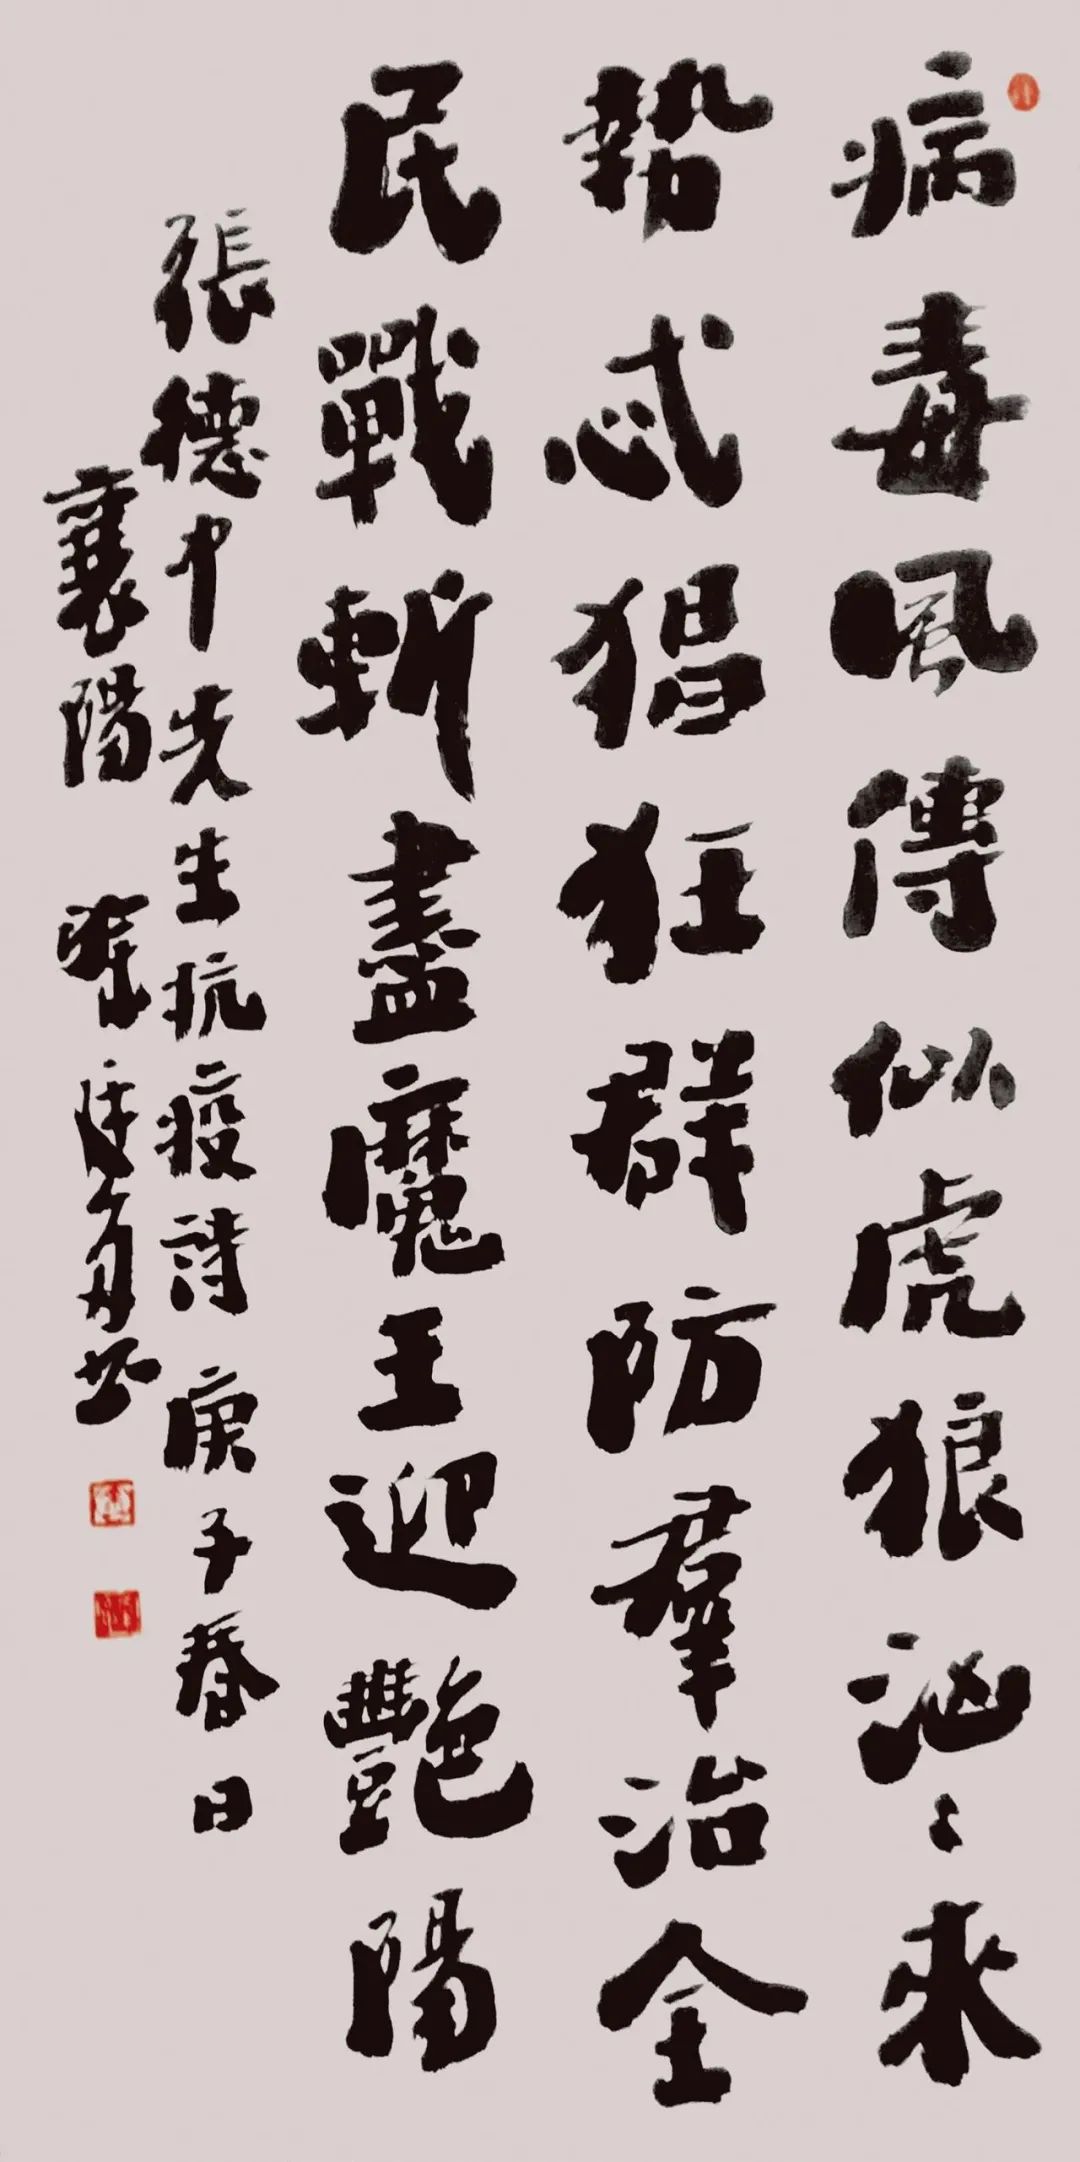 病毒風傳似虎狼汹〻來
勢忒猖狂群防羣治全
民戰斬盡魔王迎艷陽
張德中先生抗疫詩庚子春日
襄陽